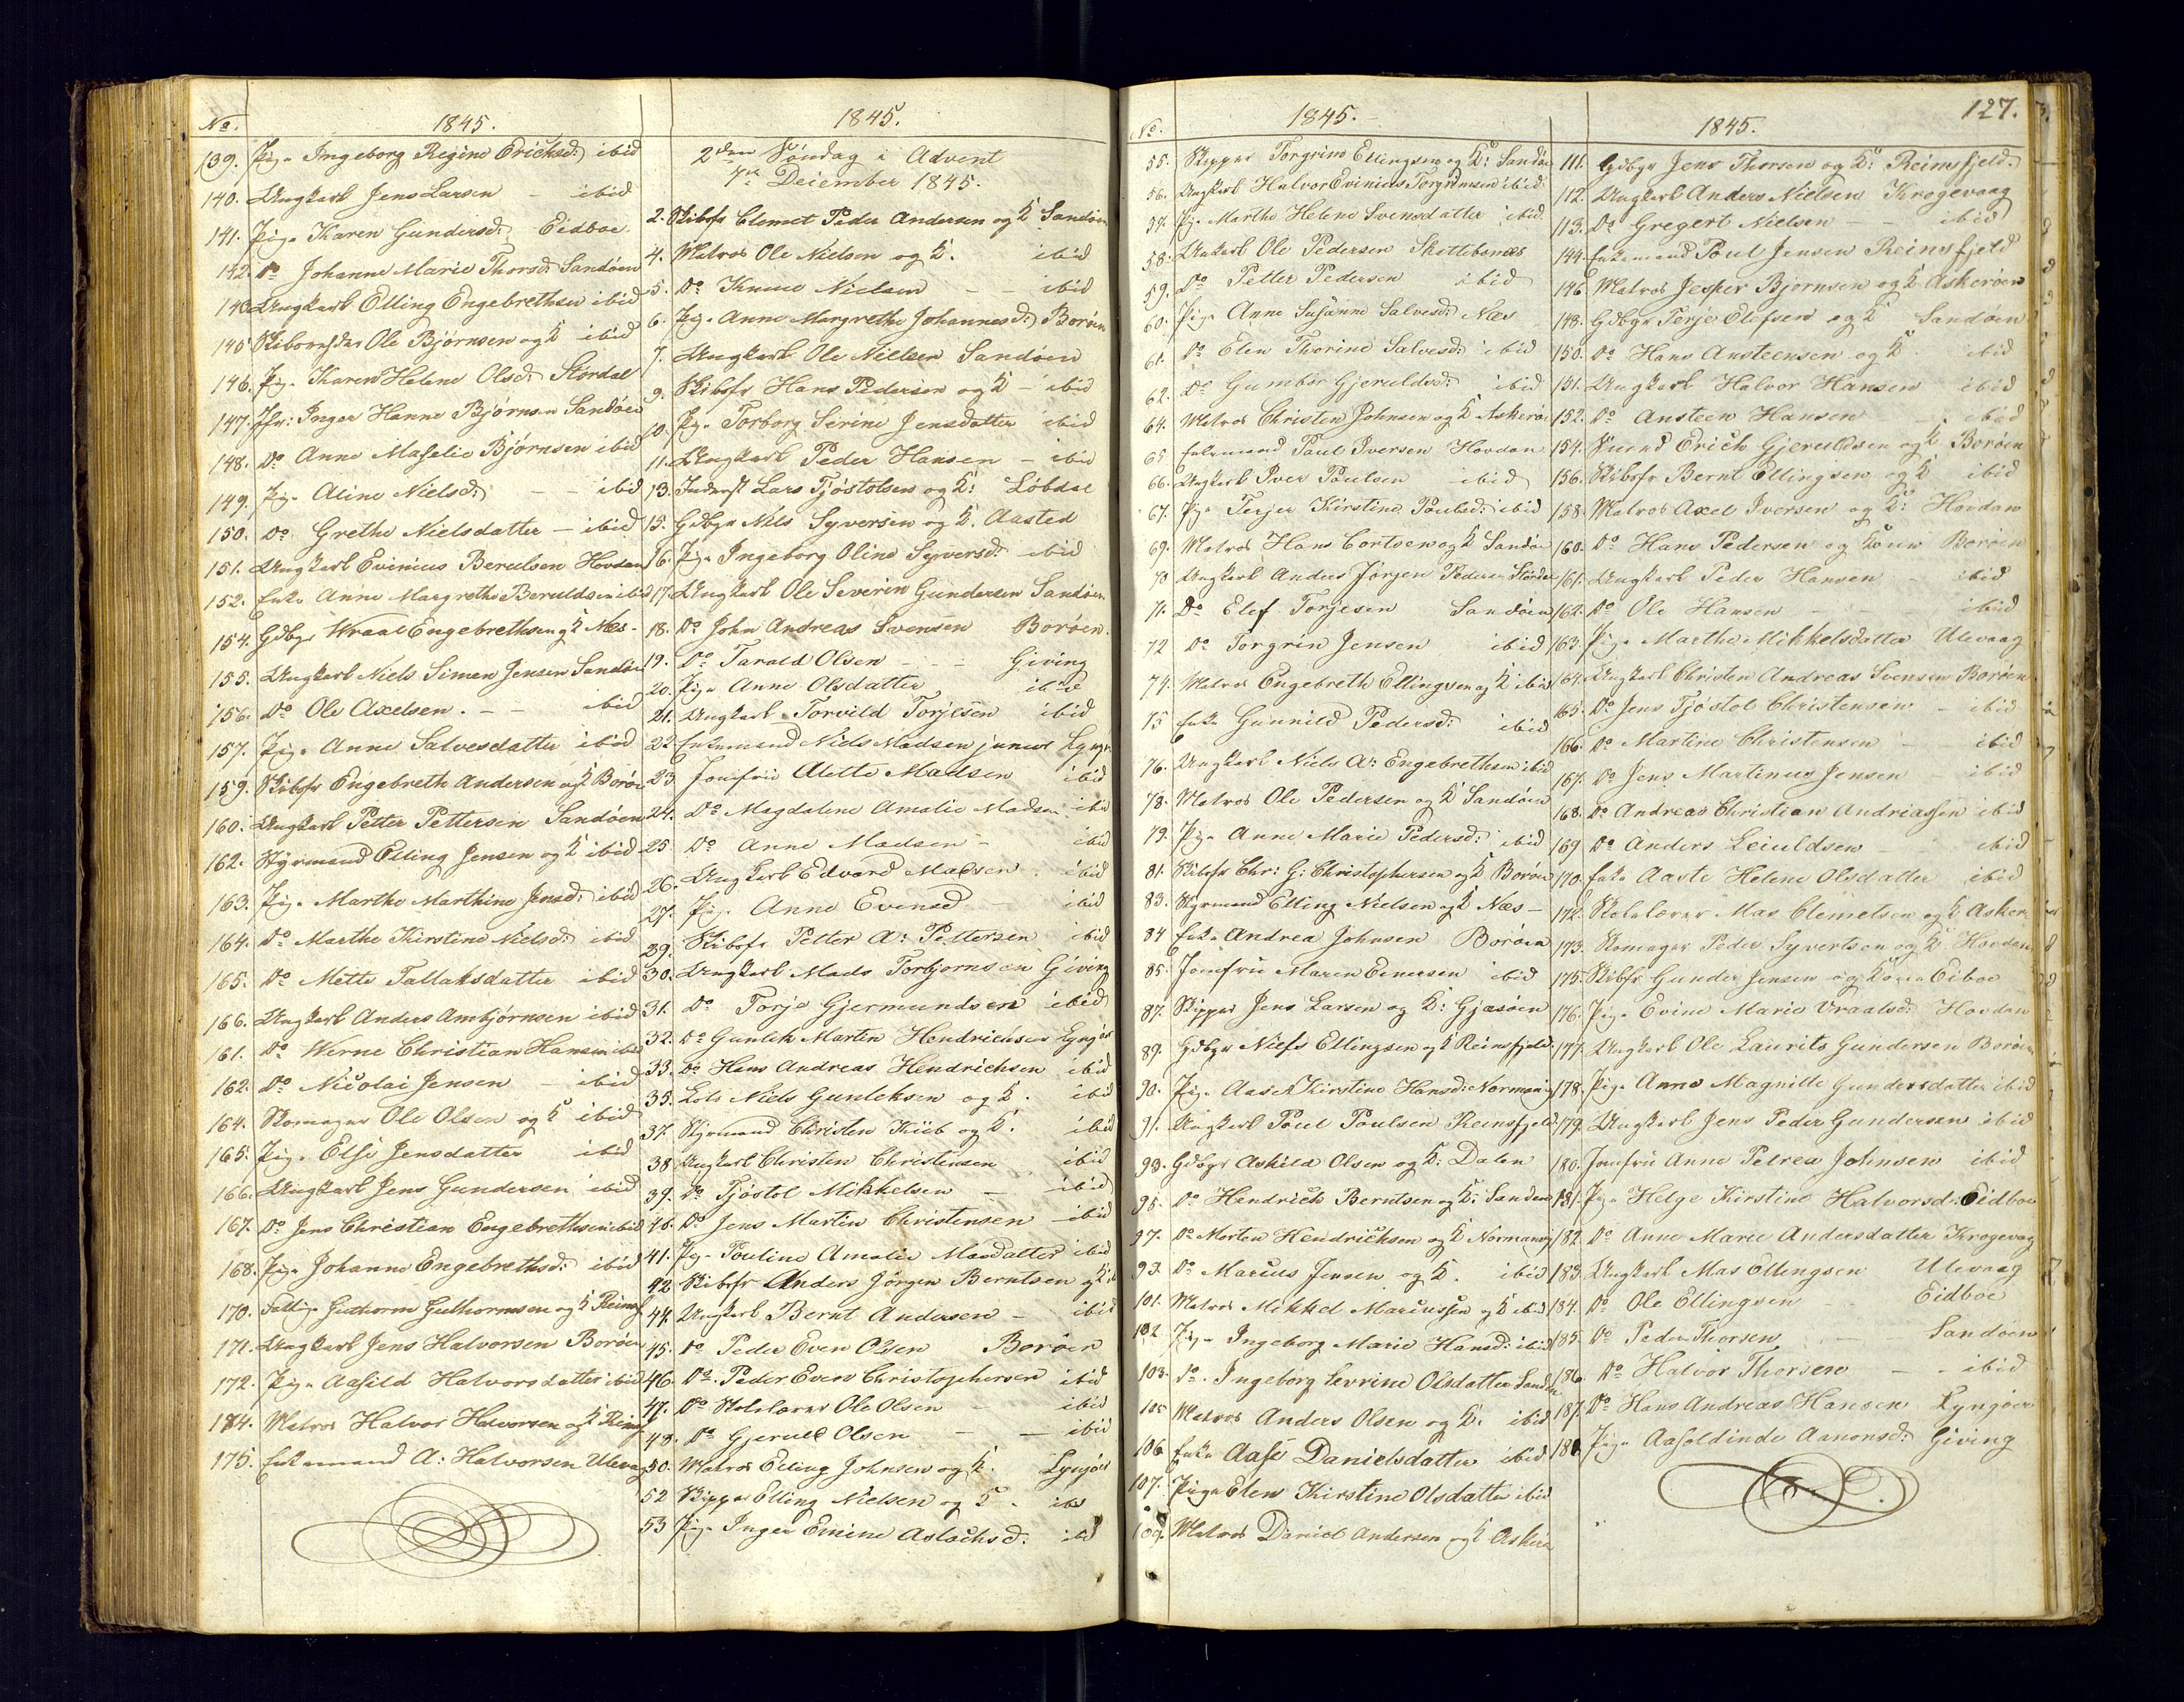 No. 1845.
139. Pige Ingeborg Regine Ericksd: ibid
140. Ungkarl Jens Larsen - ibid
141. Pige Karen Gundersd: Eidboe
142. Do Johanne Marie Thorsd: Sandöen
143. Ungkarl Elling Engebrethsen ibid
145 Ole Björnsen og K ibid
146. Pige Karen Helene Olsd: Stordal
147. Jfr: Inger Hanne Björnsen Sandöen
148. Do Anne Maselie Björnsen ibid
149. Pige Aline Nielsd: - - ibid
150. Do Grethe Nielsdatter - ibid
151. Ungkarl Evinius Berulsen Hovdan
152. Enke Anne Margrethe Beruldsen ibid
154. Gdbgr Wraal Engebrethsen og K Næs -
155. Ungkarl Niels Simen Jensen Sandöen
156. Do Ole Axelsen. - - ibid
157. Pige Anne Salvesdatter ibid
159. Skibsfr Engebreth Andersen og K Boröen
160. Ungkarl Petter Pettersen Sandöen
162. Styrmand Elling Jensen og K ibid
163. Pige Marthe Marthine Jensd: ibid
164. Do Marthe Kirstine Nielsd: ibid
165. Do Mette Tallaksdatter ibid
166. Ungkarl Anders Ambjörnsen ibid
161. Do Werne Christian Hansen ibid
162. Do Nicolai Jensen - ibid
164. Skomager Ole Olsen og K ibid
165. Pige Else Jensdatter ibid
166. Ungkarl Jens Gundersen ibid
167. Do Jens Christian Engebrethsen ibid
168. Pige Johanne Engebrethsd: ibid
170. Guthorm Guthormsen og K Reinsf
171. Ungkarl Jens Halvorsen Boröen
172. Pige Aasild Halvorsdatter ibid
174. Matros Halvor Halvorsen og K Reinsf
175. Enkemand A: Halvorsen Ulevaag
1845.
2den Söndag i Advent
7de December 1845.
2. Skibsfr Clemet Peder Andersen og K Sandöen
4. Matros Ole Nielsen og K. ibid
5. Do Knud Nielsen - - ibid
6. Pige Anne Margrethe Johannesd: Boröen
7. Ungkarl Ole Nielsen Sandöen
9. Skibsfr Hans Pedersen og K - ibid
10. Pige Torborg Serine Jensdatter ibid
11. Ungkarl Peder Hansen - ibid
13. Inderst Lars Tjöstolsen og K: Löbdal
15. Gdbgr Nils Syversen og K. Aasted
16. Pige Ingeborg Oline Syversd: ibid
17. Ungkarl Ole Severin Gundersen Sandöen
18. Do John Andreas Svensen Boröen.
19. Do Tarald Olsen - - - Giving
20. Pige Anne Olsdatter ibid
21. Ungkarl Torvild Torjesen ibid
22 Enkemand Niels Madsen junior Lyngör
23 Jomfrü Alette Madsen ibid
24. Do Magdalene Amalie Madsen ibid
25 Do Anne Madsen - ibid
26. Ungkarl Edvard Madsen. ibid
27. Pige Anne Evensd - ibid
29. Skibsfr Petter A: Pettersen ibid
30. Ungkarl Mads Torbjornsen Giving
31. Do Torje Gjermundsen ibid
32. Do Gunlek Martin Hendrichsen Lyngör
33. Do Hans Andreas Hendrichsen ibid
35. Lods Niels Gunleksen og K. ibid
37. Styrmand Christen Küb og K. ibid
38 Ungkarl Christen Christensen ibid
39. Do Tjöstol Mikkelsen - ibid
40. Do Jens Martin Christensen - ibid
41. Pige Pouline Amalie Masdatter ibid
42 Skibsfr Anders Jörgen Berntsen og K ib
44. Ungkarl Bernt Andersen - ibid
45. Do Peder Even Olsen Boröen
46. Do Peder Even Christophersen ibid
47. Do Skolelærer Ole Olsen - ibid
48. Do Gjeruld Olsen - - ibid
50. Matros Elling Johnsen og K. Lyngör
52 Skipper Elling Nielsen og K. ibd
53 Pige Inger Emine Aslachsd: ibd
No. 1845. -
55. Skipper Torgrim Ellingsen og K: Sandöen
56. Ungkarl Halvor Evinius Torgrimsen ibid
57. Pige Marthe Helene Svensdatter ibid
58. Ungkarl Ole Pedersen Skottebernæs
59. Do Petter Pedersen ibid
60. Pige Anne Susanne Salvesd: Næs
61. Do Elen Thorine Salvesd: ibid
62. Do Gumbör Gjeruldsd: ibid
64. Matros Christen Johnsen og K Askeröen
65 Enkemand Paul Iversen Hovdan
66. Ungkarl Iver Poulsen ibid
67. Pige Terjer Kirstine Poulsd: ibid
69. Matros Hans Cortsen og K Sandöen
70 Ungkarl Anders Jörgen Pedersen Stordal
71. Do Elef Torjesen Sandöen
72 Do Torgrin Jensen ibid
74. Matros Engebreth Ellingsen og K ibid
75 Enke Gunnild Pedersd: ibid
76. Ungkarl Niels A: Engebrethsen ibid
78. Matros Ole Pedersen og K Sandöen
79. Pige Anne Marie Pedersd: ibid
81. Skibsfr Chr: G: Christophersen og K Boröen
83. Styrmand Elling Nielsen og K Næs -
84 Enke Andrea Johnsen Boröen
85. Jomfrü Maren Evensen ibid
87. Skipper Jens Larsen og K: Gjæsöen
89. Gdbgr Niels Ellingsen og K Reinsfjeld.
90. Pige Aaset Kirstine Hansd: Normanvig
91. Ungkarl Poul Poulsen Reinsfjeld
93. Gdbgr Askild Olsen og K: Dalen
95. Do Hendrich Berntsen og K: Sanden
97. Do Morten Hendrichsen og K Normanvig
99. Do Marcus Jensen og K. ibid
101. Matros Mikkel Marcussen og K ibid
102 Pige Ingeborg Marie Hansd: ibid
103. Do. Ingeborg Sevrine Olsdatter Sanden
105 Matros Anders Olsen og K. ibid
106 Enke Aase Danielsdatter ibid
107. Pige Elen Kirstine Olsdatter ibid
109. Matros Daniel Andersen og K Askeröen
127.
1845.
111. Gdbgr Jens Thorsen og K: Reinsfjeld.
112. Ungkarl Anders Nielsen Krogevaag
113. Do Gregert Nielsen - ibid
144. Enkemand Poul Jensen Reinsfjeld
146. Matros Jesper Bjornsen og K Askeröen
148. Gdbgr Terje Elefsen og K Sandöen
150. Do Hans Ansteensen og K ibid
151. Ungkarl Halvor Hansen ibid
152. Do Ansteen Hansen - ibid
154. Erich Gjeruldsen og K Boröen
156. Skibsfr Bernt Ellingsen og K ibid
158. Matros Axel Iversen og K: Hovdan
160. Do Hans Pedersen og Konen Boröen
161. Ungkarl Peder Hansen - ibid
162. Do Ole Hansen - - ibid
163. Pige Marthe Mikkelsdatter Ulevaag
164. Ungkarl Christen Andreas Svensen Boröen
165. Do Jens Tjöstol Christensen - ibid
166. Do Martine Christensen - ibid
167. Do Jens Martinus Jensen - ibid
168. Do Andreas Christian Andriassen ibid
169 Do Anders Leiuldsen - ibid
170. Enke Aaste Helene Olsdatter ibid
172. Skolelærer Mas Clemetsen og K Asker
173. Skomager Peder Syvertsen og K Hovdan
175. Skibsfr Gunder Jensen og Kone Eiboe
176. Pige Evine Marie Vraalsd: Hovdan
177. Ungkarl Ole Laurits Gundersen Boröen
178. Pige Anne Magnille Gundersdatter ibid
179. Ungkarl Jens Peder Gundersen ibid
180. Jomfrü Anne Petrea Johnsen ibid
181. Pige Helge Kirstine Halvorsd: Eidboe
182. Do Anne Marie Andersdatter Krogevag
183. Ungkarl Mas Ellingsen Ulevaag
184. Do Ole Ellingsen - - Eidboe
185. Do Peder Thorsen - Sandöen
186. Do Halvor Thorsen - - ibid
187. Do Hans Andreas Hansen Lyngöer
188. Pige Aasoldinde Aanonsd: Giving